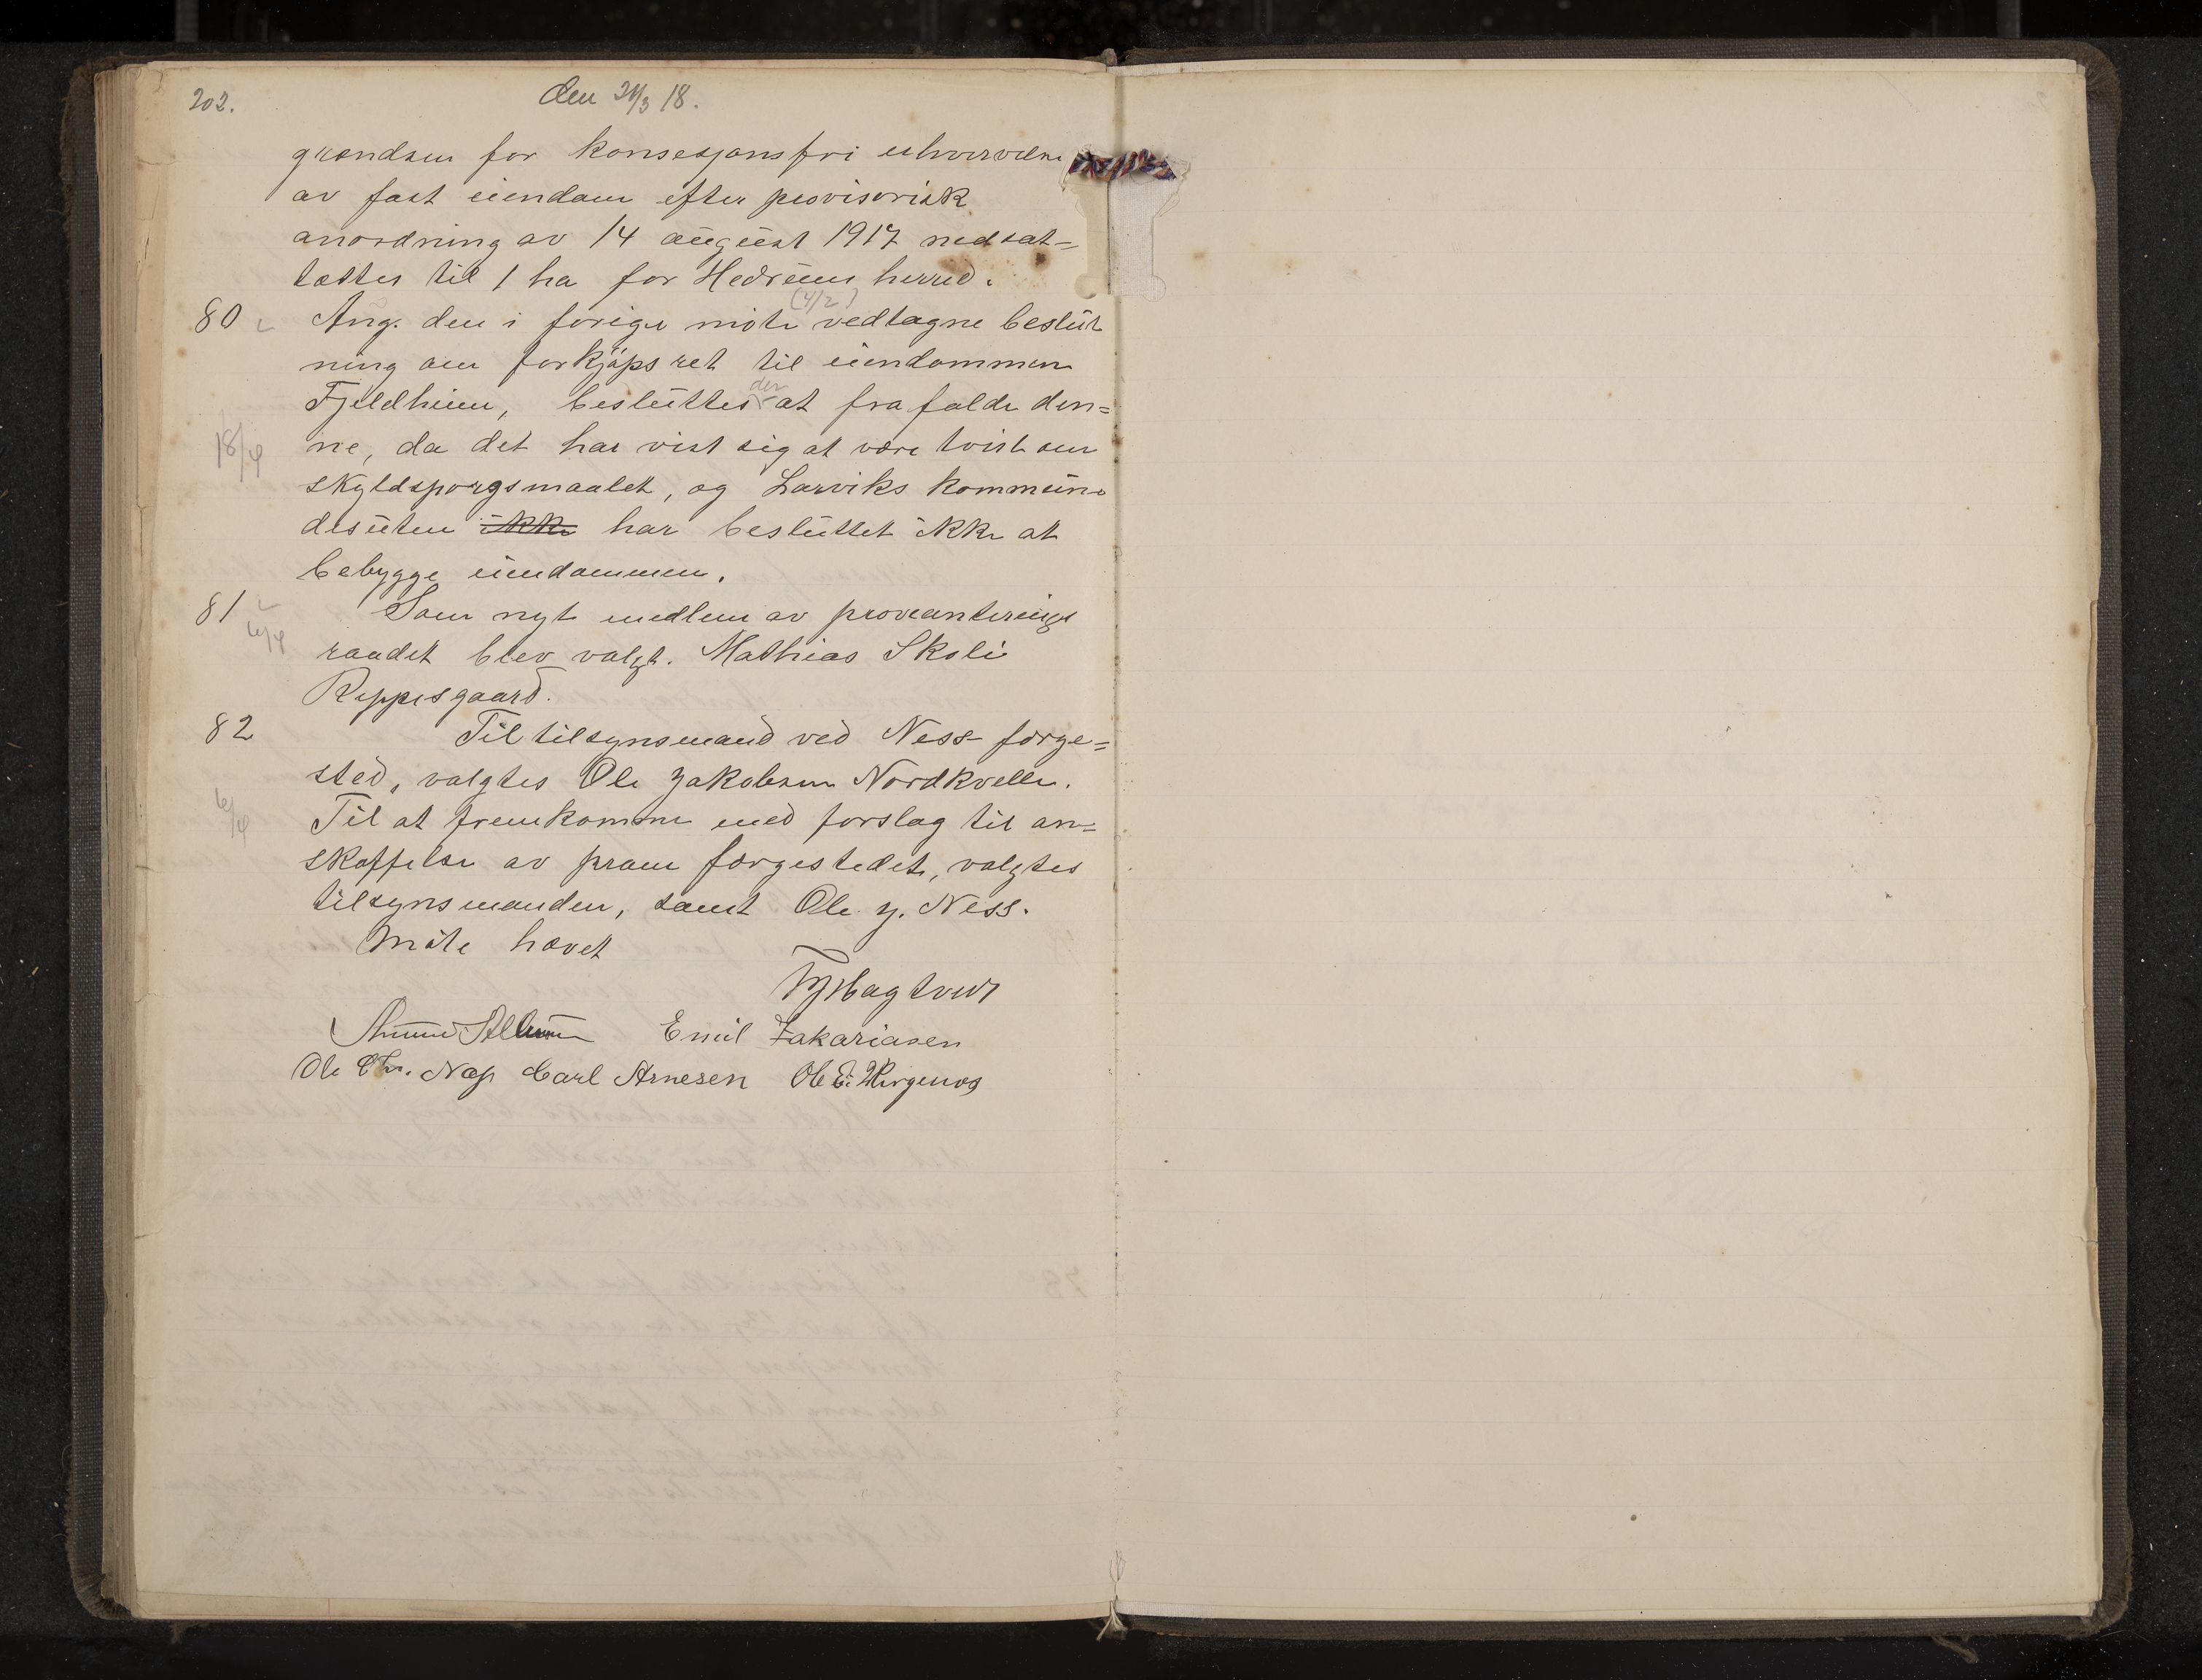 202.
Den 21/3 18.
grændsen for konsesjonsfri erhvervelse
av fast eiendom efter provisorisk
anordning av 14 august 1917 nedsat=
tættes til 1 ha for Hedrum herred.
80 Ang. den i forige møte (4/2) vedtagne beslut
ning om forkjøpsret til eiendommen
Fjeldheim, besluttes der at frafalde den=
18/4 ne, da det har vist sig at være tvist om
skyldsporgsmaalet, og Larviks kommune
desuten ikke har besluttet ikke at
bebygge eiendommen.
81 Som nyt medlem av provianterings
6/4 raadet blev valgt. Mathias Skoli
Reppesgaard.
82 Til tilsynsmand ved Ness færge=
sted, valgtes Ole Jakobsen Nordkvelle.
6/4 Til at fremkomme med forslag til an=
skaffelse av pram færgestedet, valgtes
tilsynsmanden, samt Ole J. Ness.
Møte hævet
Emil Zakariasen
Ole Chr. Næs Carl Arnesen Ole E.